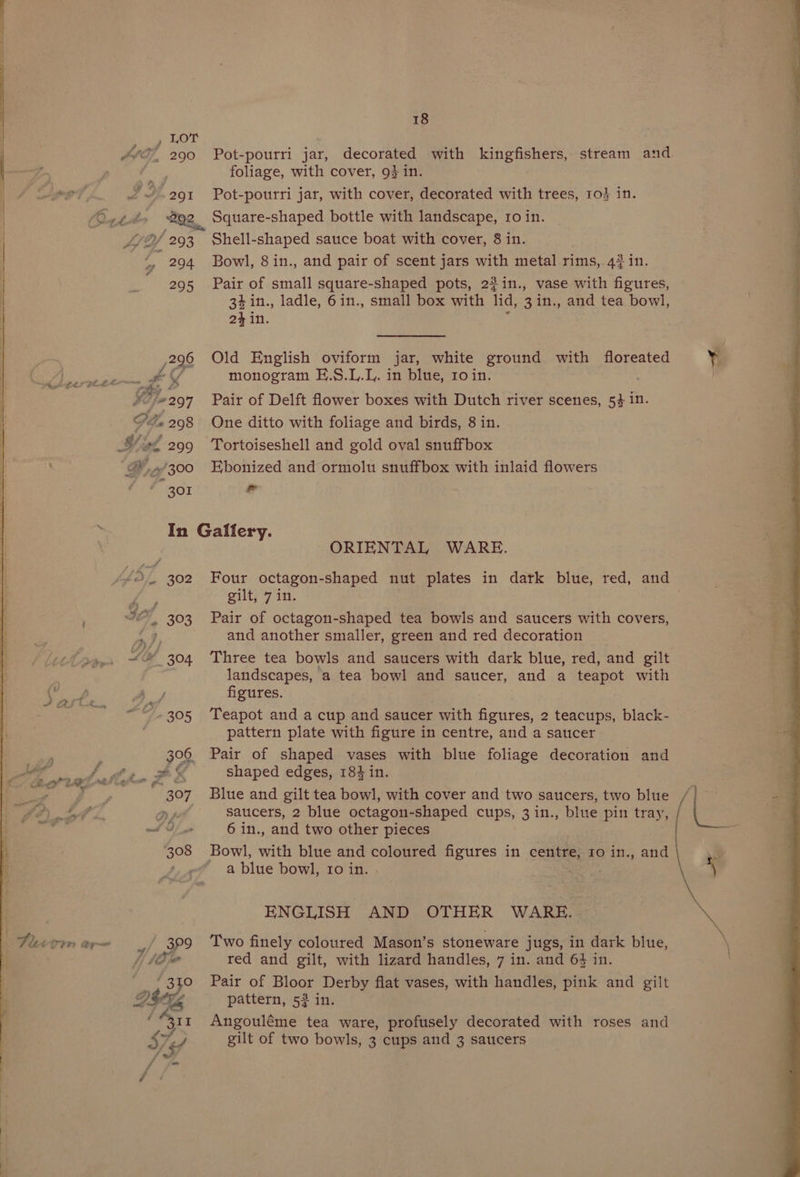 18
LOT
290 Pot-pourri jar, decorated with kingfishers, stream and
foliage, with cover, 9½ in.
291 Pot-pourri jar, with cover, decorated with trees, 10½ in.
292 Square-shaped bottle with landscape, 10 in.
293 Shell-shaped sauce boat with cover, 8 in.
294 Bowl, 8 in., and pair of scent jars with metal rims, 4¾ in.
295 Pair of small square-shaped pots, 2¾ in., vase with figures,
3½ in., ladle, 6 in., small box with lid, 3 in., and tea bowl,
2½ in.
296 Old English oviform jar, white ground with floreated
monogram E.S.L.L. in blue, 10 in.
297 Pair of Delft flower boxes with Dutch river scenes, 5½ in.
298 One ditto with foliage and birds, 8 in.
299 Tortoiseshell and gold oval snuffbox
300 Ebonized and ormolu snuffbox with inlaid flowers
301
In Gallery.
ORIENTAL WARE.
302 Four octagon-shaped nut plates in dark blue, red, and
gilt, 7 in.
303 Pair of octagon-shaped tea bowls and saucers with covers,
and another smaller, green and red decoration
304 Three tea bowls and saucers with dark blue, red, and gilt
landscapes, a tea bowl and saucer, and a teapot with
figures.
305 Teapot and a cup and saucer with figures, 2 teacups, black-
pattern plate with figure in centre, and a saucer
306 Pair of shaped vases with blue foliage decoration and
shaped edges, 18½ in.
307 Blue and gilt tea bowl, with cover and two saucers, two blue
saucers, 2 blue octagon-shaped cups, 3 in., blue pin tray,
6 in., and two other pieces
308 Bowl, with blue and coloured figures in centre, 10 in., and
a blue bowl, 10 in.
ENGLISH AND OTHER WARE.
309 Two finely coloured Mason's stoneware jugs, in dark blue,
red and gilt, with lizard handles, 7 in. and 6½ in.
310 Pair of Bloor Derby flat vases, with handles, pink and gilt
pattern, 5¾ in.
311 Angoulême tea ware, profusely decorated with roses and
gilt of two bowls, 3 cups and 3 saucers